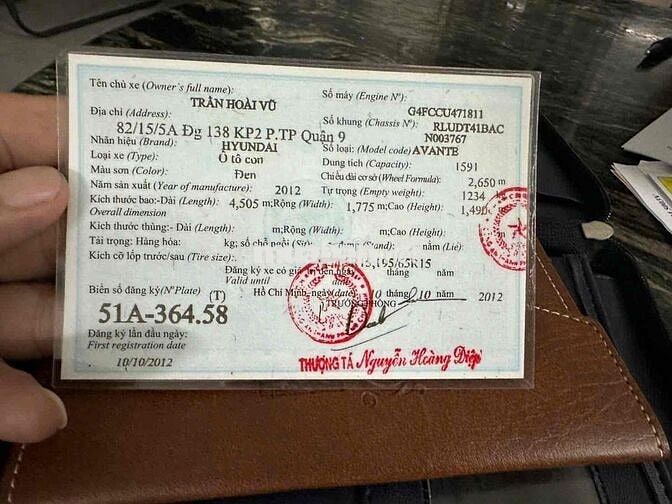 Tên chủ xe (Owner's full name):
TRẦN HOÀI VŨ
Số máy (Engine Nº):
G4FCCU471811
Địa chỉ (Address):
82/15/5A Đg 138 KP2 P.TP Quận 9
Số khung (Chassis Nº):
RLUDT41BAC
N003767
Nhãn hiệu (Brand): HYUNDAI
Số loại: (Model code) AVANTE
Loại xe (Type): Ô tô con
Dung tích (Capacity): 1591
Màu sơn (Color): Đen
Chiều dài cơ sở (Wheel Formula): 2,650 m
Năm sản xuất (Year of manufacture): 2012
Tự trọng (Empty weight): 1234
Kích thước bao: Dài (Length): 4,505 m; Rộng (Width): 1,775 m; Cao (Height): 1,490
Overall dimension
Kích thước thùng: - Dài (Length): m; Rộng (Width): m; Cao (Height):
Tải trọng: Hàng hóa: kg; số chỗ ngồi đứng (Stand): nằm (Lie)
Kích cỡ lốp trước/sau (Tire size): 195/65R15
Đăng ký xe có giá trị đến ngày tháng năm
Valid until date
Biển số đăng ký (N° Plate) (T)
Hồ Chí Minh, ngày (date) 10 tháng 10 năm 2012
TRƯỞNG PHÒNG
51A-364.58
Đăng ký lần đầu ngày:
First registration date
10/10/2012
THƯỢNG TÁ Nguyễn Hoàng Diệp